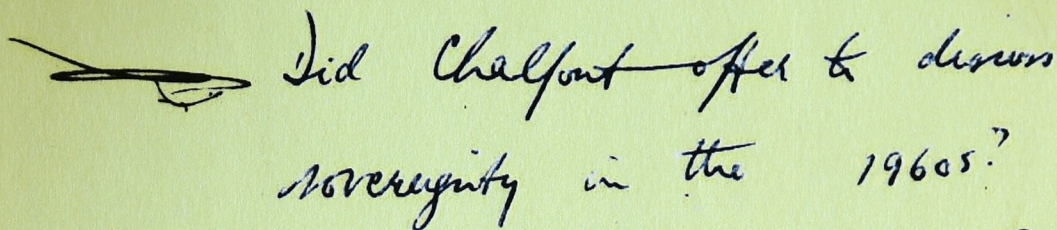 Did Chalfont offer to discuss
sovereignty in the 1960s?